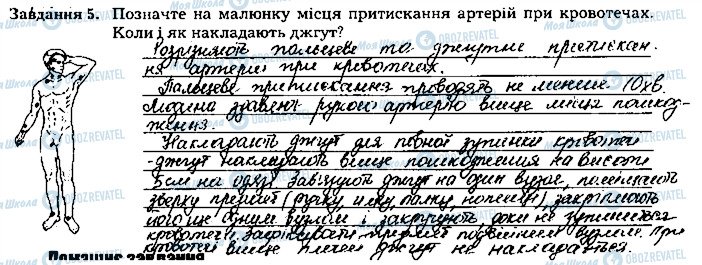 Завдання 5. Позначте на малюнку місця притискання артерій при кровотечах.
Коли і як накладають джгут?
Розрізняють пальцеве та джгутне притискан-
ня артерії при кровотечах.
Пальцеве притискання проводять не менше 10 хв.
Людина здавлює рукою артерію вище місця пошкод-
ження.
Накладають джгут для повної зупинки кровотечі
-джгут накладають вище пошкодження на висоті
5см на одяг. Зав'язують джгут на один вузол, поміщають
зверху предмет (ручку, палку, ножиці) закріплюють
його ще одним вузлом і закручують, доки не зупиниться
кровотеча. Закріплюють предмет подвійним вузлом. При
кровотечі вище плеча джгут не накладається.
Домашнє завдання